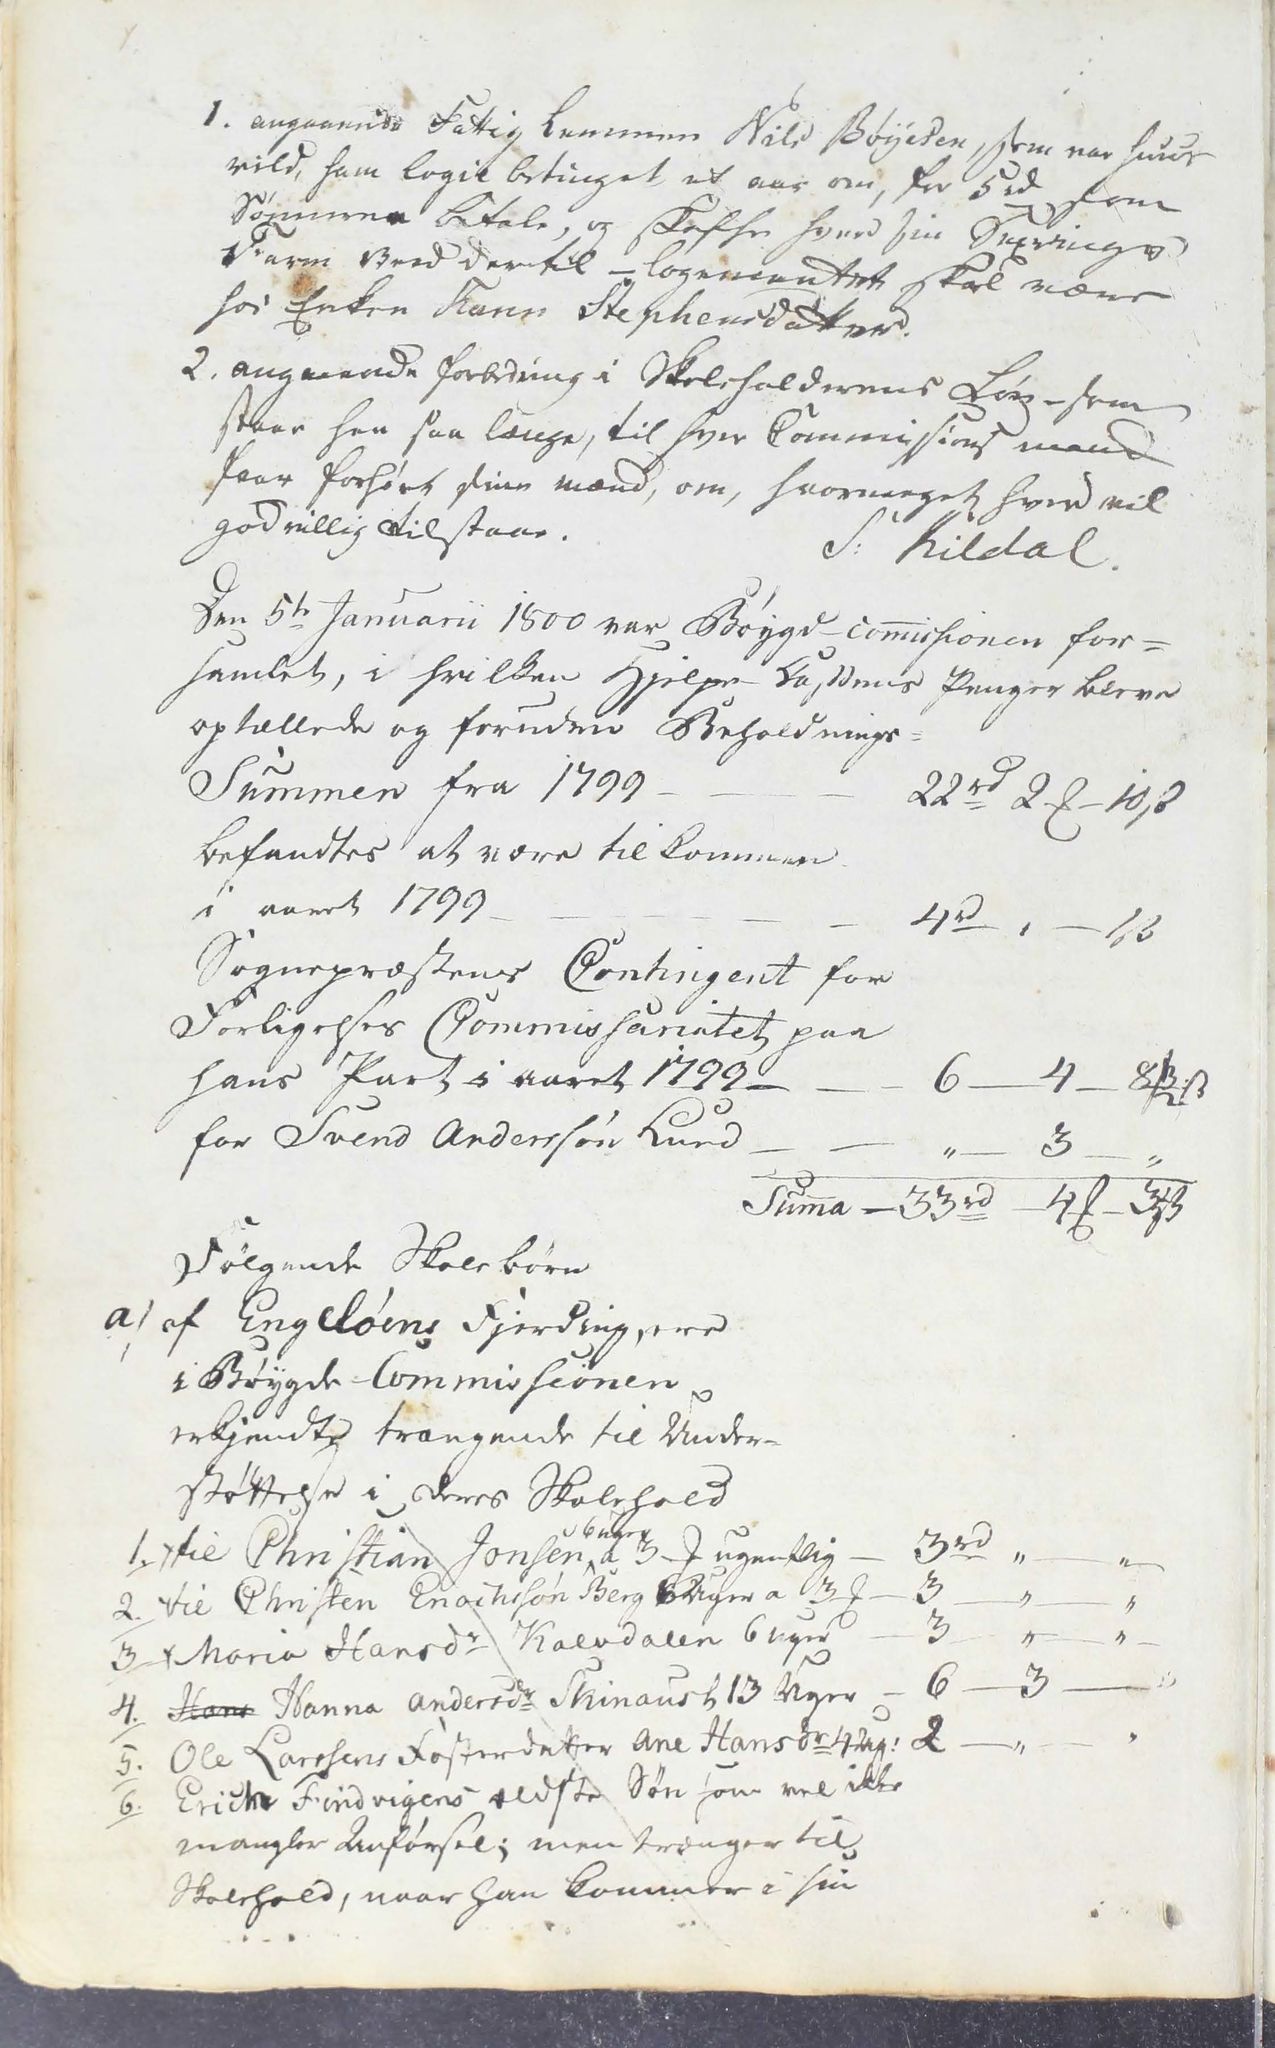 1. angaaende Fattig Lemmen Nils Böÿesen, som var huus
vild, ham logie betinget et aar om, for 5 rd som
Sönnerne betale, og skaffer hver sin
Farm Veed dertil – logementet skal være
hos Enken Karen Stephensdatter.
2. angaaende forbedring i Skoleholderens Løn – som
staar hen saa længe, til hver Commissions mand
faar forhört sine mænd, om, hvormeget hver vil
godvillig tilstaae.
S: Kildal.
Den 5te Januarii 1800 var Böÿgd-Commissionen for=
samlet, i hvilken Hjelpe Kassens Penger bleve
optællede og foruden Beholdnings=
Summen fra 1799 – – – 22 rd 2 – 10 ß
befandtes at være tilkommen
i aaret 1799 – – – – – 4 rd „ – 1 ß
Sognepræstens Contingent for
Forligelses Commissariatet paa
hans Part i aaret 1799 – – 6 – 4 – 8 ß
for Svend Anderssön Lund – – „ – 3 – „
Suma – 33 rd – 4 – 3 ß
Følgende Skolebörn
a) af Engelöens Fjerding, ere
i Böÿgde-Commissionen
erkjendte trængende til Under-
støttelse i deres Skolehold
1. til Christian Jonsen, 6 uger a 3 ugentlig – 3 rd „ – „
2. til Christen Enochssön Berg 6 Uger a 3 – 3 – „ – „
3 Maria Hansdr Kalvdalen 6 uger – 3 – „ – „
4. Hans Hanna andersdr Skinaust 13 Uger – 6 – 3 – „
5. Ole Larssens Fosterdatter Ane Hansdr 4 Ug: 2 – „ – „
6. Erich Findvigens ældste Sön som vel ikke
mangler Anförsel; men trænger til
Skolehold, naar han kommer i sin